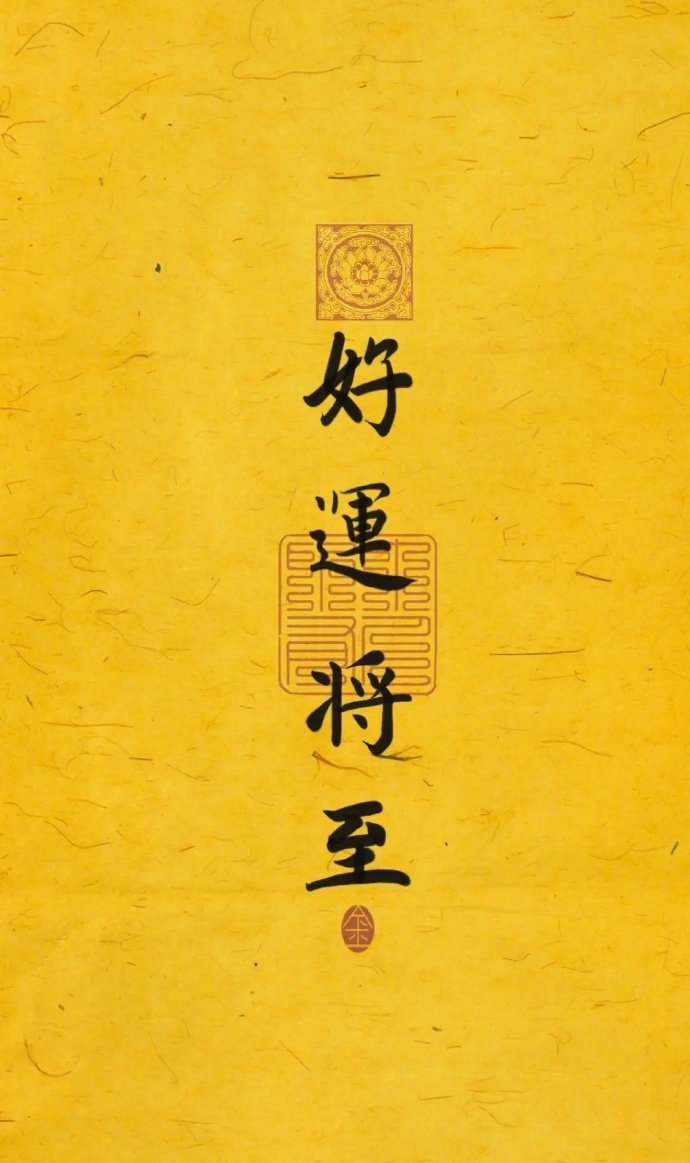 好運将至